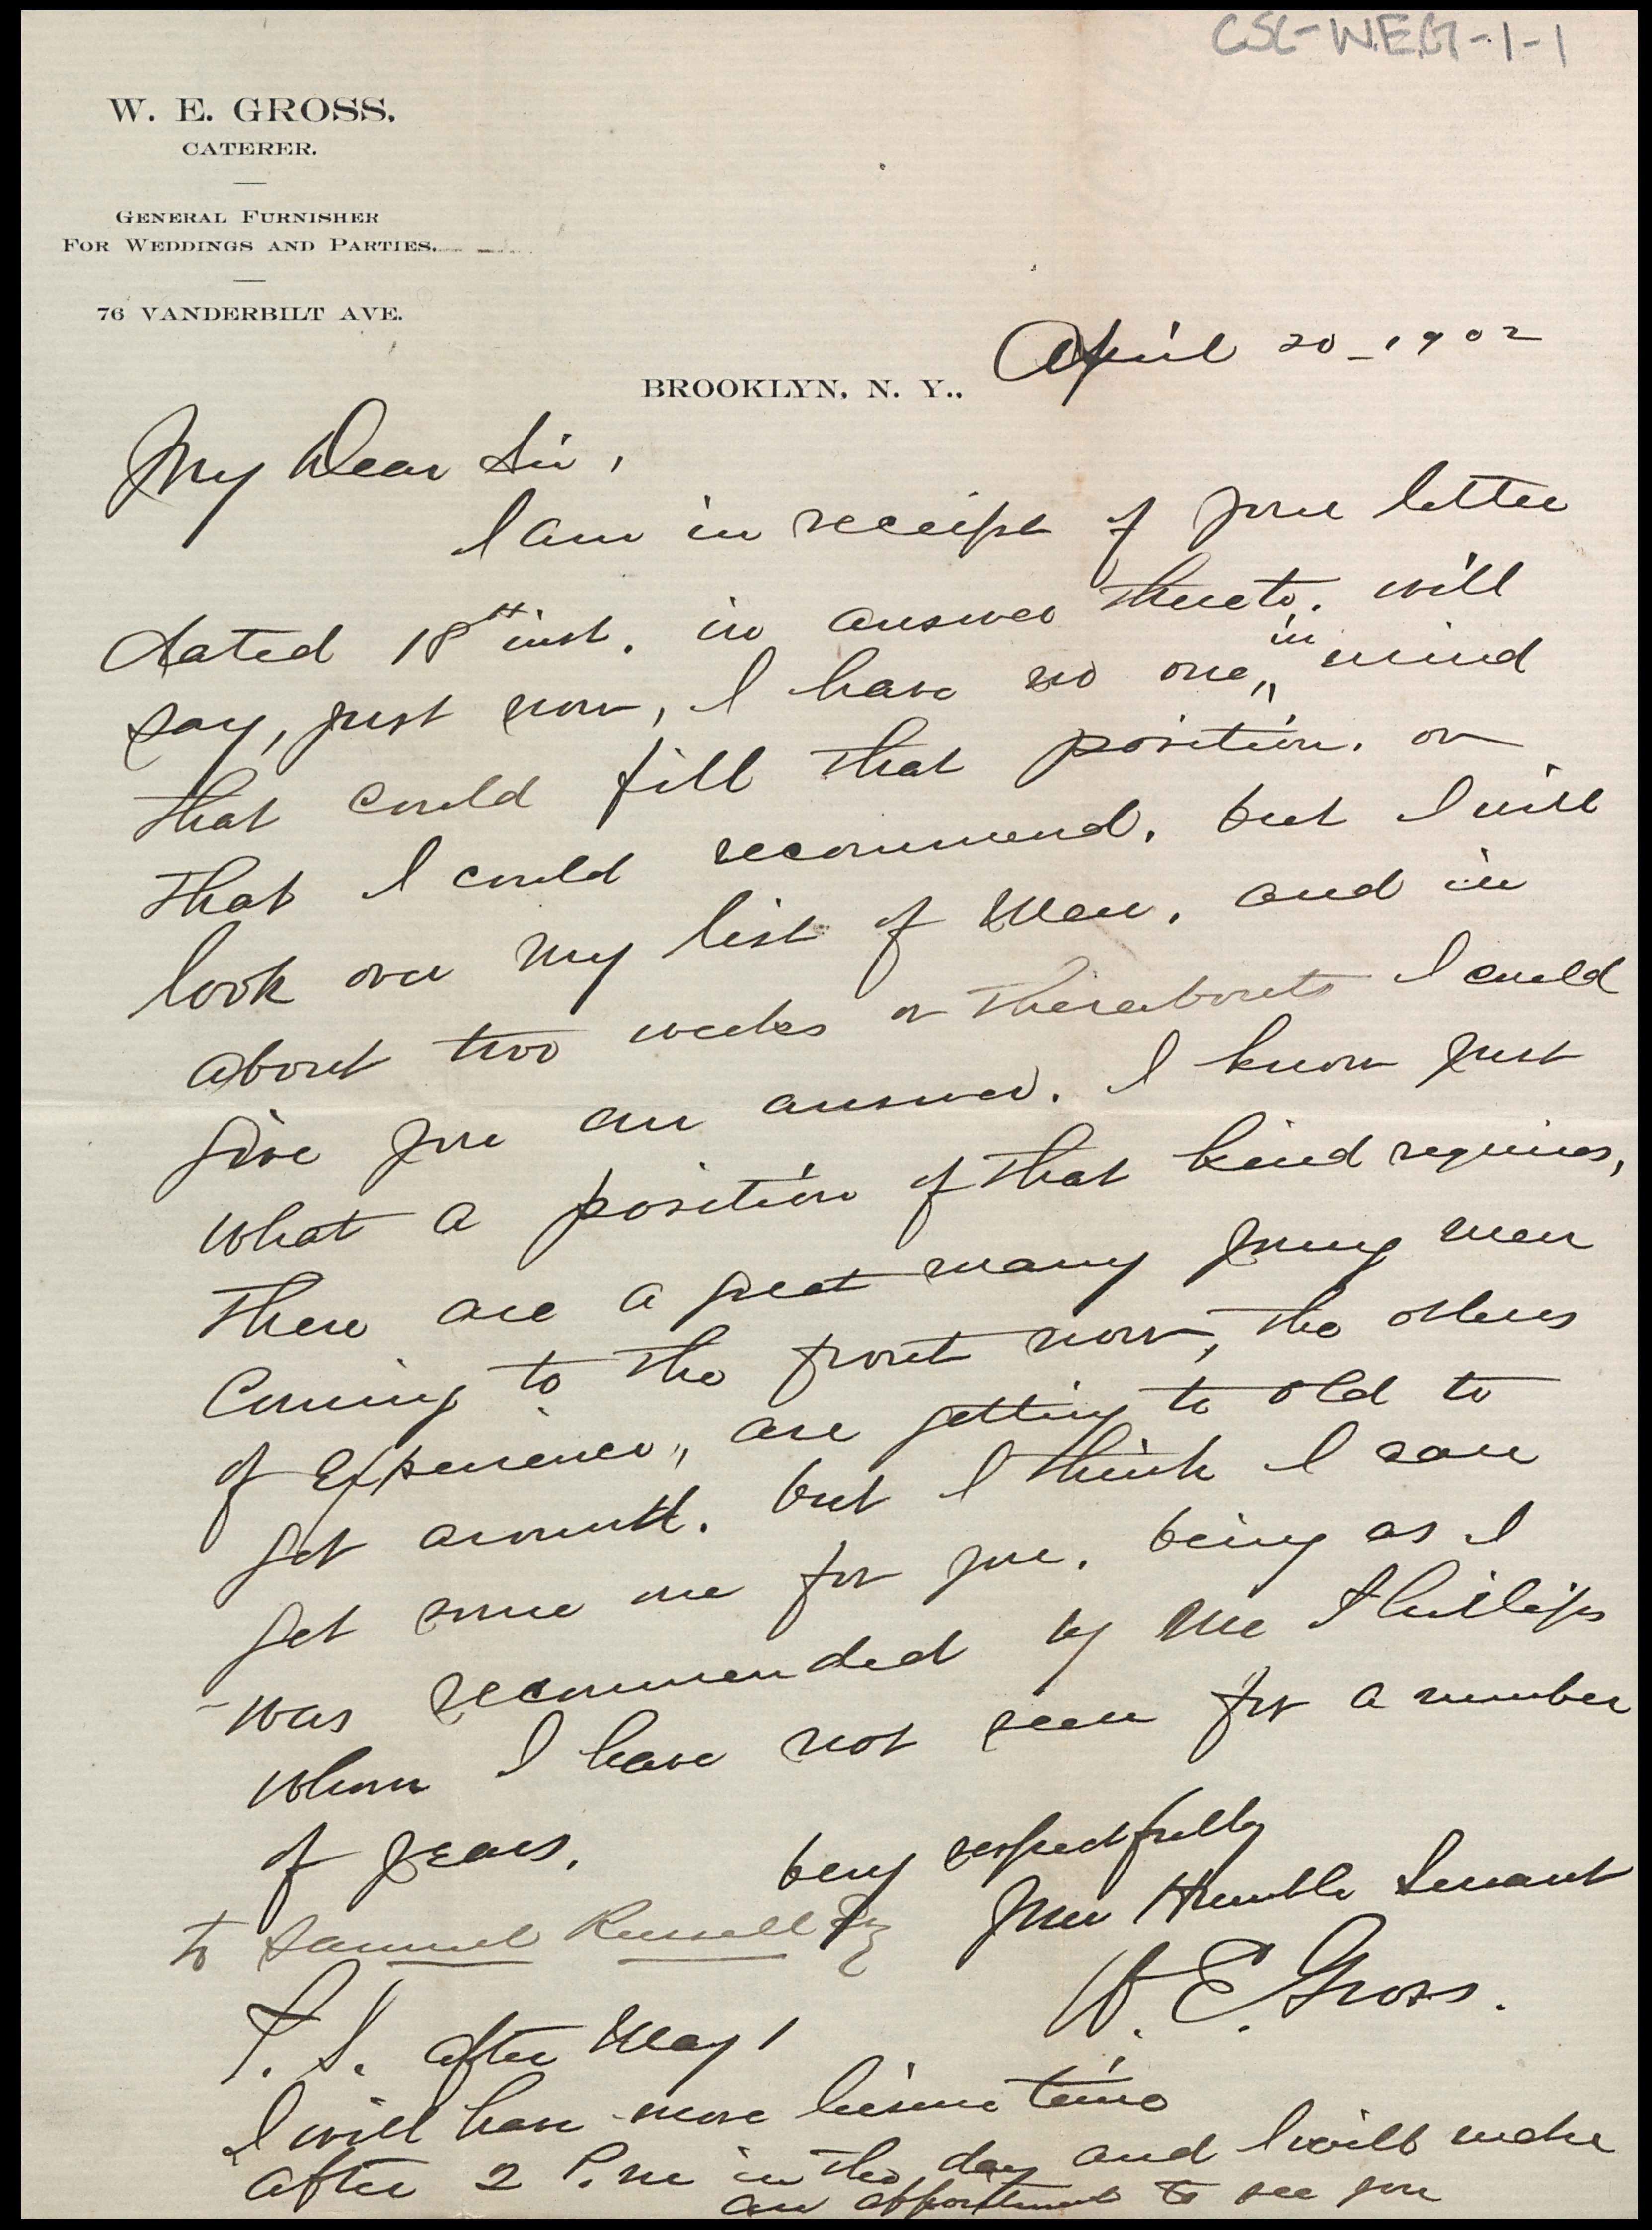 CSC-W.E.G-1-1
W. E. GROSS.
CATERER.
GENERAL FURNISHER
FOR WEDDINGS AND PARTIES.
76 VANDERBILT AVE.
BROOKLYN, N. Y., April 20-1902
My Dear Sir,
I am in receipt of your letter
dated 18th inst. in answer thereto. will
say, just now, I have no one,, in mind
that could fill that position. or
that I could recommend. but I will
look over my list of men. and in
about two weeks or thereabouts I could
give you an answer. I know just
what a position of that kind requires,
there are a great many young men
Coming to the front now, the others
of Experience,, are getting to old to
get around. but I think I can
get some one for you. being as I
was recommended by Mr Phillips
whom I have not seen for a number
of years.
very respectfully
your Humble Servant
to Samuel Russell Esq
W. E. Gross.
P. S. after May 1
I will have more leisure time
after 2 P.m in the day and I will make
an appointment to see you